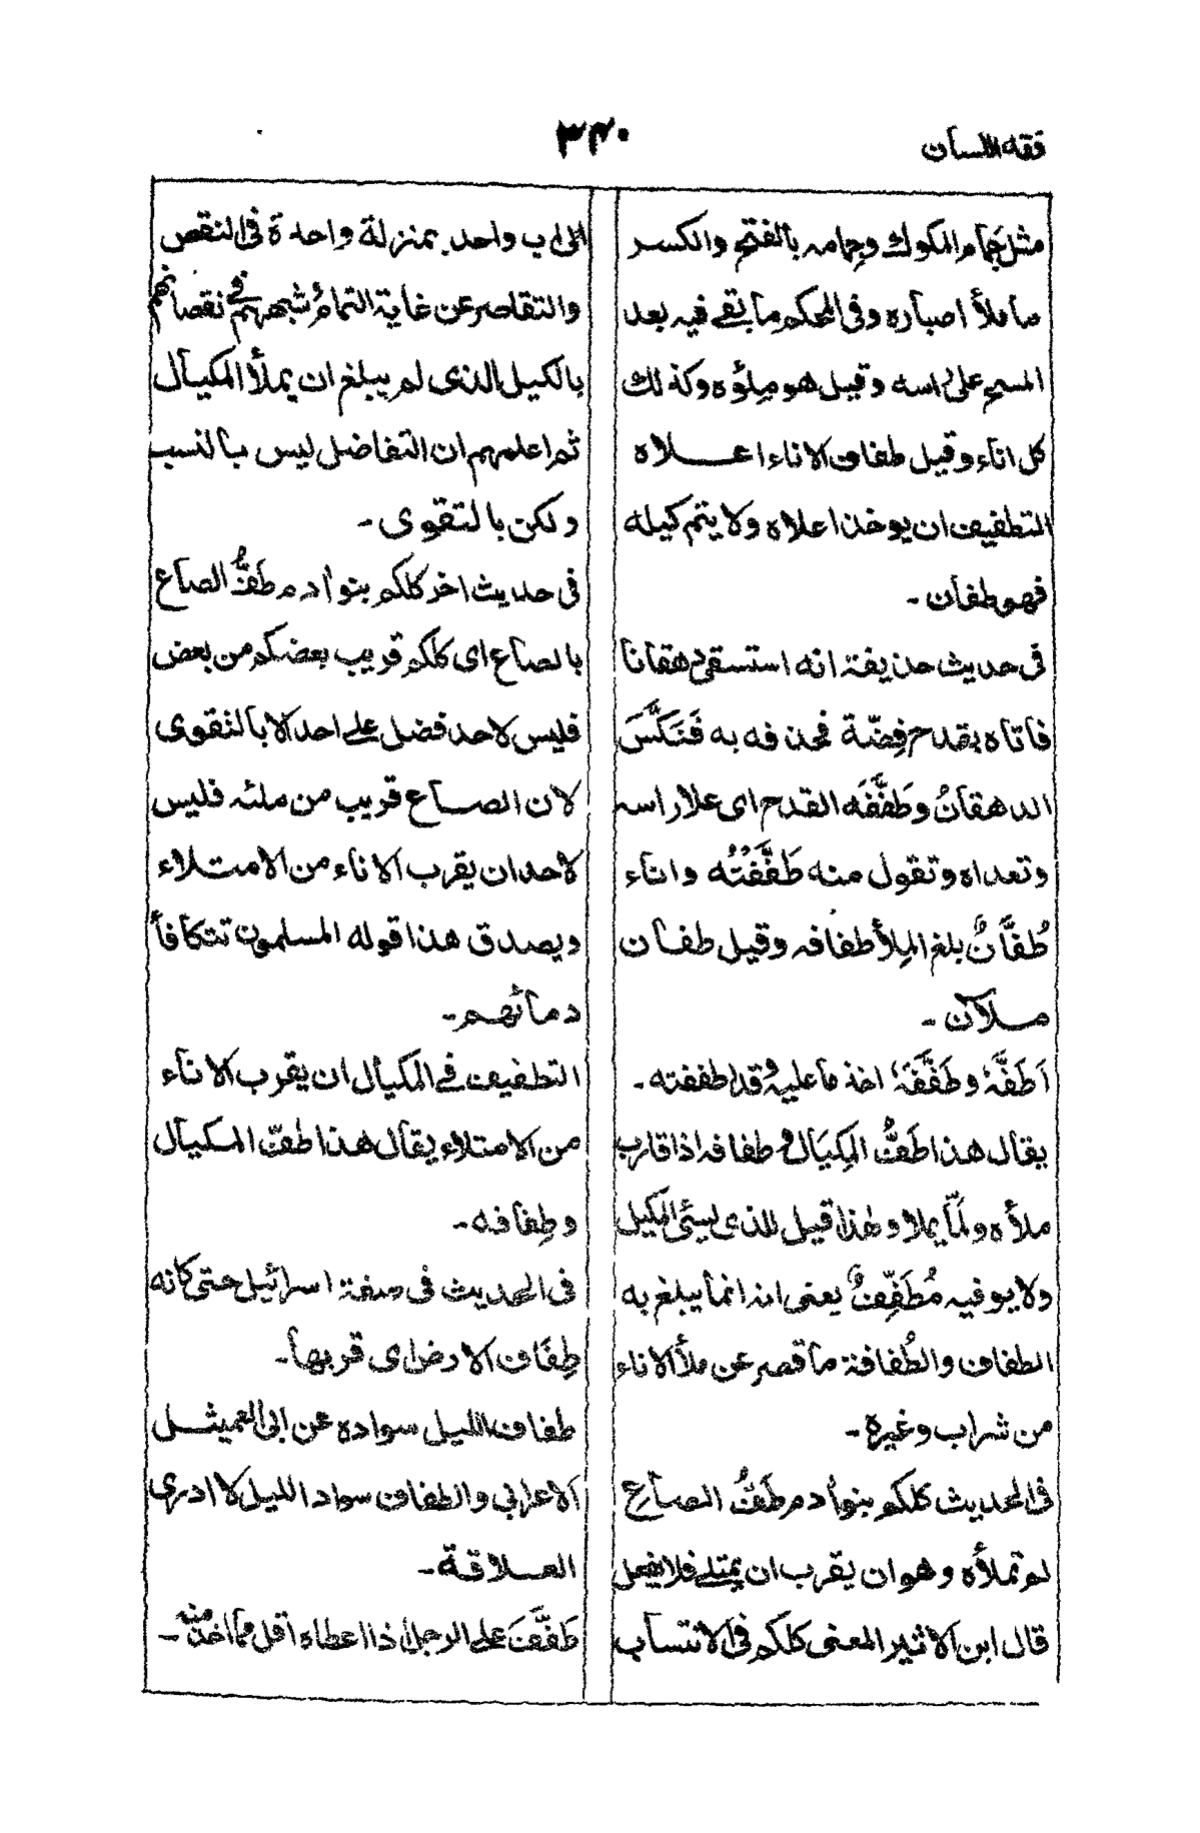 فقه اللسان
۳۴۰
مثل جَمام المكوك وجِمامه بالفتح والكسر
ما ملأ اصباره وفى المحكم ما بقى فيه بعد
المسح على راسه وقيل هو مِلؤه وكذلك
كل اناء وقيل طفاف الاناء اعلاه
التطفيف ان يوخذ اعلاه ولا يتم كيله
فهو طفان -
فى حديث حذيفة انه استسقى دهقانا
فاتاه بقدح فِضّة فحذفه به فَنَكَّسَ
الدهقانُ وطَفَّفَه القدح اى علا راسه
وتعداه وتقول منه طَفَّفْتُه واناء
طُفَّانٌ بلغ المِلأ طفافه وقيل طفان
ملآن -
اَطَفَّهٗ وطَفَّفَهٗ اخذ ما عليه وقد اطففته -
يقال هذا طَفُّ المِكيَال وطفافه اذا قارب
ملأه ولمّا يملا ولهذا قيل للذى يسئى الكيل
ولا يوفيه مُطَفِّفٌ يعنى انه انما يبلغ به
الطفاف والطُفافة ما قصر عن ملأ الاناء
من شراب وغيره -
فى الحديث كلكم بنو اٰدم طَفُّ الصاع
لم تملأه وهو ان يقرب ان يمتلى فلا يفعل
قال ابن الاثير المعنى كلكم فى الانتساب
الى اب واحد بمنزلة واحدة فى النقص
والتقاصر عن غاية التمام شبههم فى نقصانهم
بالكيل الذى لم يبلغ ان يملأ المكيال
ثم اعلمهم ان التفاضل ليس بالنسب
ولكن بالتقوى -
فى حديث اخر كلكم بنو اٰدم طَفُّ الصاع
بالصاع اى كلكم قريب بعضكم من بعض
فليس لاحد فضل على احد الا بالتقوى
لان الصاع قريب من ملئه فليس
لاحد ان يقرب الاناء من الامتلاء
ويصدق هذا قوله المسلمون تتكافأ
دمائهم -
التطفيف فى المكيال ان يقرب الاناء
من الامتلاء يقال هذا طفّ المكيال
وطِفافه -
فى الحديث فى صفة اسرائيل حتى كانه
طِفَاف الارض اى قربها -
طفاف الليل سواده عن ابى العميثل
الاعرابي والطفاف سواد الليل لا ادرى
العلاقة -
طَفَّفَ على الرجل اذا اعطاه اقل مما اخذ منه -